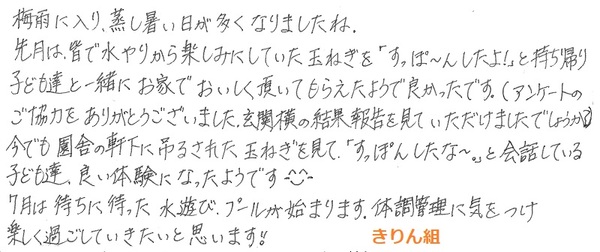 梅雨に入り、蒸し暑い日が多くなりましたね。
先月は、皆で水やりから楽しみにしていた玉ねぎを「すっぽ〜んしたよ!」と持ち帰り
子ども達と一緒にお家でおいしく頂いてもらえたようで良かったです。(アンケートの
ご協力をありがとうございました。玄関横の結果報告を見ていただけましたでしょうか?)
今でも園舎の軒下に吊るされた玉ねぎを見て、「すっぽんしたな〜。」と会話している
子ども達、良い体験になったようです^^
7月は待ちに待った水遊び、プールが始まります。体調管理に気をつけ
楽しく過ごしていきたいと思います!!
きりん組